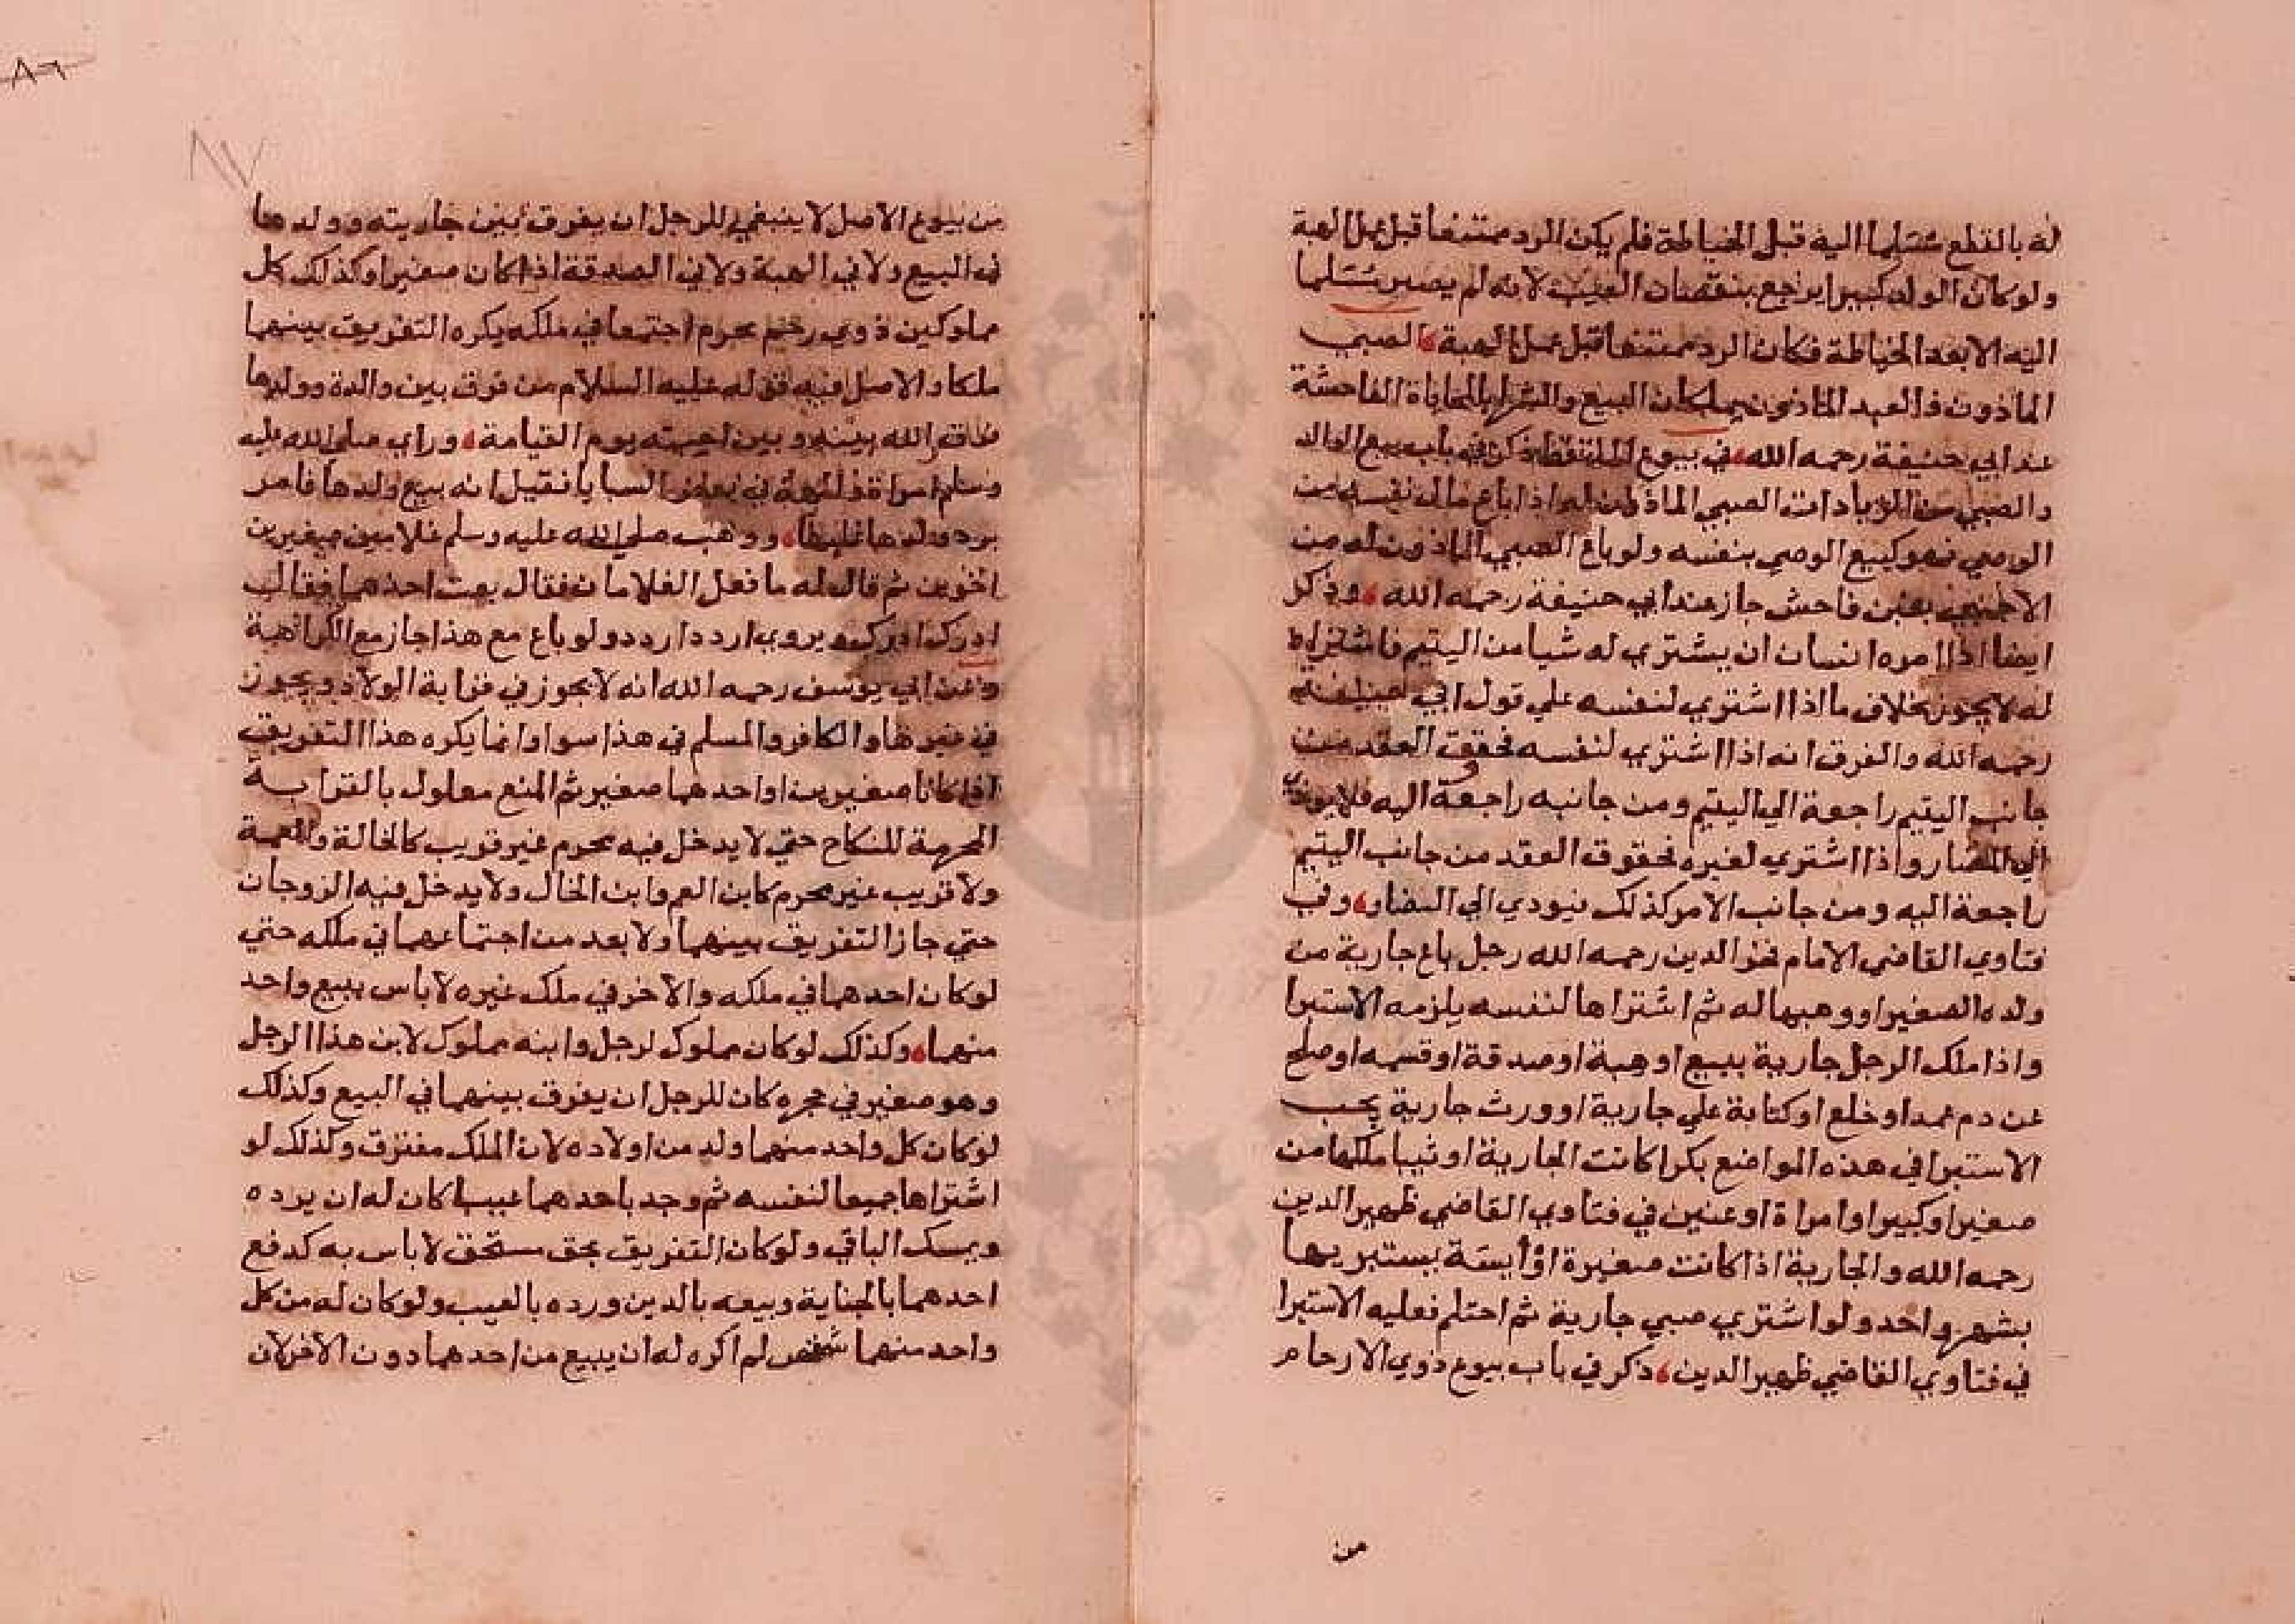 له بالقطع مُسَلِّما اليه قبل الخياطة فلم يكن الرد ممتنعا قبل عمل الهبة
ولو كان الولد كبيرا يرجع بنقصان العيب لانه لم يصير مُسَلما
اليه الا بعد الخياطة فكان الرد ممتنعا قبل عمل الهبة الصبي
الماذون والعبد الماذون يملكان البيع والشراء بالمحاباة الفاحشة
عند ابي حنيفة رحمه الله في بيوع الملتقط ذكر في باب بيع الوالد
والصبي من الزيادات الصبي الماذون له اذا باع مال نفسه من
الوصي فهو كبيع الوصي بنفسه ولو باع الصبي الماذون له من
الاجنبي بغبن فاحش جاز عند ابي حنيفة رحمه الله وذكر
ايضا اذا امره انسان ان يشتري له شيا من اليتيم فاشتراه
له لا يجوز بخلاف ما اذا اشتري لنفسه علي قول ابي حنيفة
رحمه الله والفرق انه اذا اشتري لنفسه فحقوق العقد من
جانب اليتيم راجعة الي اليتيم ومن جانبه راجعة اليه فلا يودي
الي المضار واذا اشتري لغيره فحقوق العقد من جانب اليتيم
راجعة اليه ومن جانب الامر كذلك فيودي الي التضاد وفي
فتاوي القاضي الامام فخر الدين رحمه الله رجل باع جارية من
ولده الصغير او وهبها له ثم اشتراها لنفسه يلزمه الاستبرا
واذا ملك الرجل جارية ببيع او هبة او صدقة او قسمه او صلح
عن دم عمد او خلع او كتابة علي جارية او ورث جارية يجب
الاستبرا في هذه المواضع بكرا كانت الجارية او ثيبا ملكها من
صغير او كبير او امراة او عنين في فتاوي القاضي ظهير الدين
رحمه الله والجارية اذا كانت صغيرة او أيسة يستبريها
بشهر واحد ولو اشتري صبي جارية ثم احتلم فعليه الاستبرا
في فتاوي القاضي ظهير الدين ذكر في باب بيوع ذوي الارحام
من
٨٧
من بيوع الاصل لا ينبغي للرجل ان يفرق بين جاريته وولدها
في البيع ولا في الهبة ولا في الصدقة اذا كان صغيرا وكذلك كل
مملوكين ذوي رحم محرم اجتمعا في ملكه يكره التفريق بينهما
ملكا والاصل فيه قوله عليه السلام من فرق بين والدة وولدها
فرق الله بينه وبين احبته يوم القيامة وراي صلي الله عليه
وسلم امراة والهة في بعض السبايا فقيل انه بيع ولدها فامر
برد ولدها ووهب صلي الله عليه وسلم غلامين صغيرين
اخوين ثم قال له ما فعل الغلامان فقال بعت احدهما فقال
ادرك ادرك ويروي اردد اردد ولو باع مع هذا جاز مع الكراهية
وعن ابي يوسف رحمه الله انه لا يجوز في قرابة الولاد ويجوز
في غيرها والكافر والمسلم في هذا سوا وانما يكره هذا التفريق
اذا كانا صغيرين او احدهما صغير ثم المنع معلول بالقرابة
المحرمة للنكاح حتي لا يدخل فيه محرم غير قريب كالخالة والعمة
ولا قريب غير محرم كابن العم وابن الخال ولا يدخل فيه الزوجان
حتي جاز التفريق بينهما ولا بعد من اجتماعهما في ملكه حتي
لو كان احدهما في ملكه والاخر في ملك غيره لا باس ببيع واحد
منهما وكذلك لو كان مملوك لرجل وابنه مملوك لابن هذا الرجل
وهو صغير في حجره كان للرجل ان يفرق بينهما في البيع وكذلك
لو كان كل واحد منهما ولد من اولاده لان الملك مفترق وكذلك لو
اشتراها جميعا لنفسه ثم وجد باحدهما عيبا كان له ان يرده
ويمسك الباقي ولو كان التفريق بحق مستحق لا باس به كدفع
احدهما بالجناية وبيعه بالدين ورده بالعيب ولو كان له من كل
واحد منهما شقص لم اكره له ان يبيع من احدهما دون الاخر لان